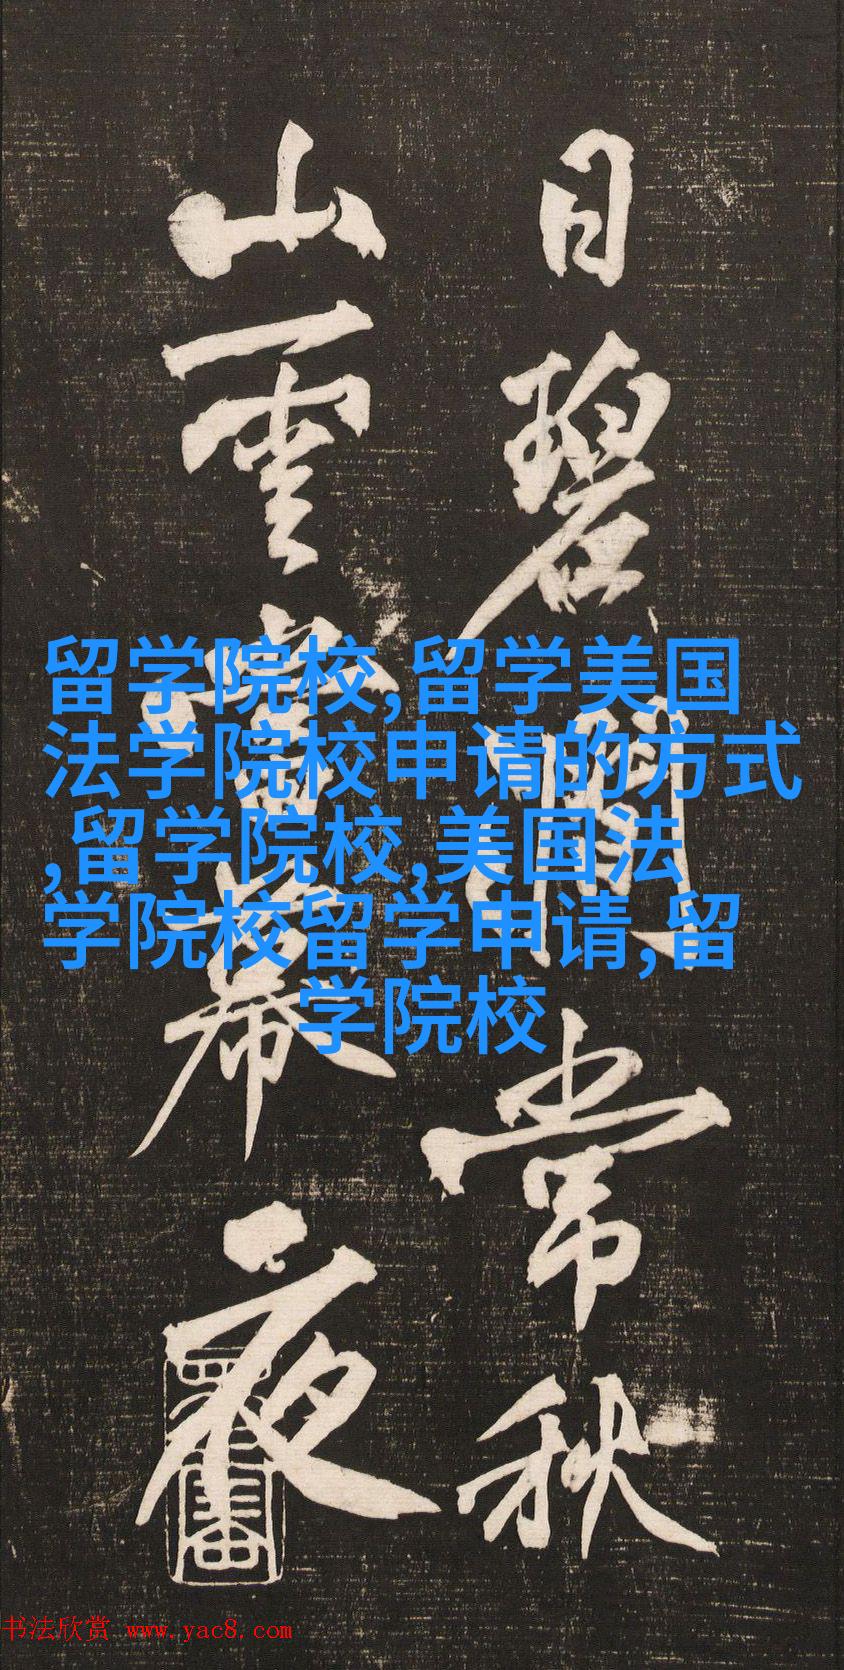 日碧澗常秋
山雲當幕夜
留学院校,留学美国
法学院校申请的方式
,留学院校,美国法
学院校留学申请,留
学院校
书法欣赏 www.yac8.com